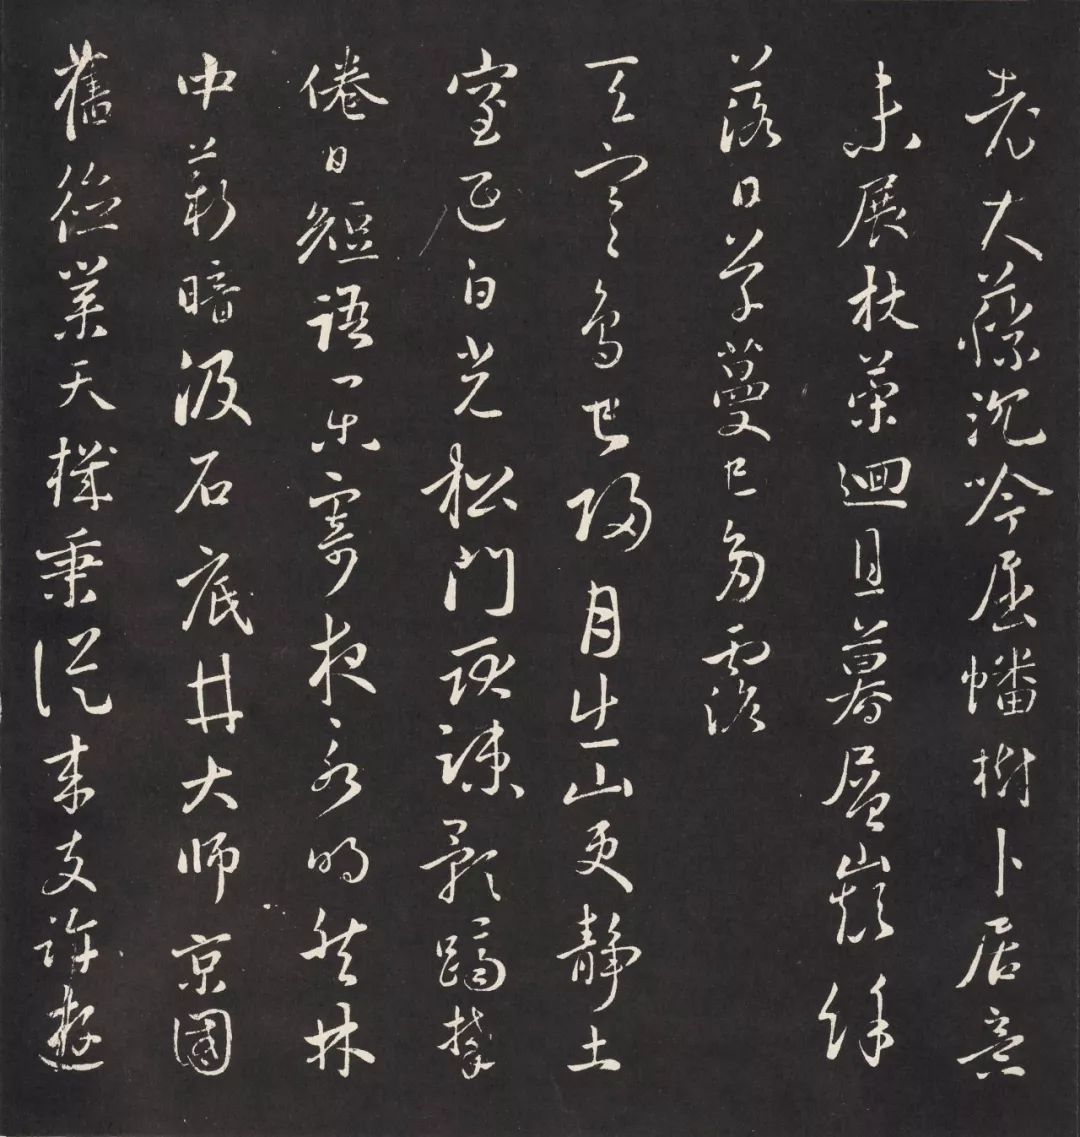 老大藤沉吟屈幡樹卜居意
未展杖策迴且暮層巔餘
落日草蔓已多露
天寒鳥已歸月出山更静土
室延白光松門耿疎影躋攀
倦日短語樂寄夜永明然林
中薪暗汲石底井大師京國
舊德業天機秉從來支許遊